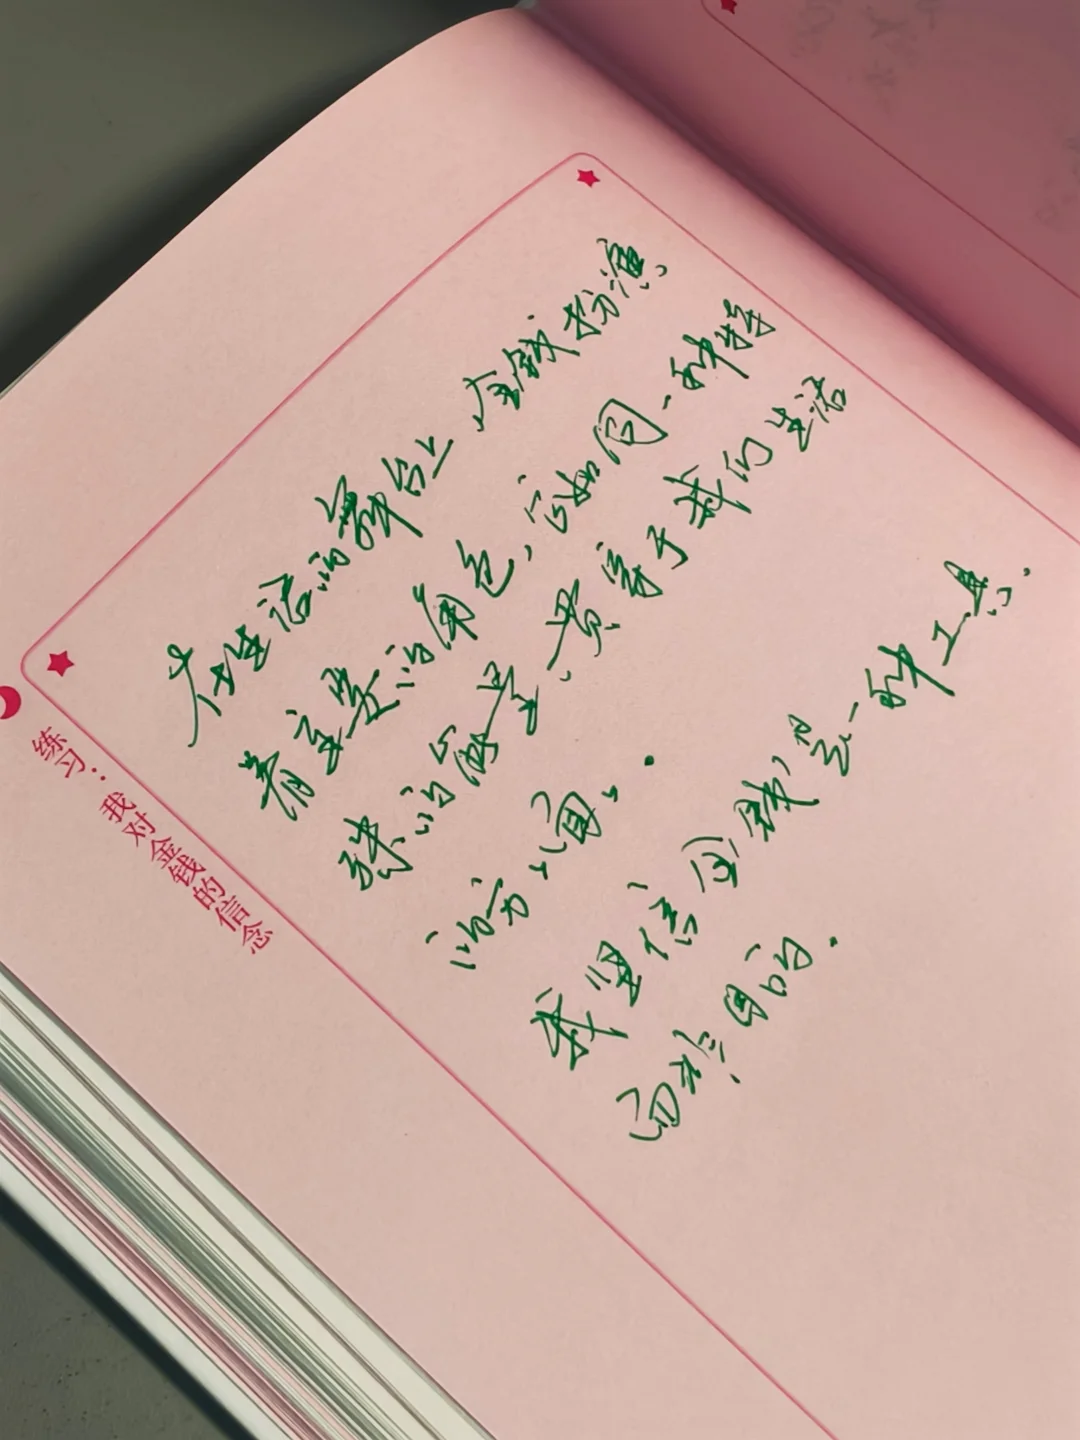 练习：我对金钱的信念
在生活的舞台上,金钱扮演
着重要的角色,它如同一种特
殊的能量,贯穿于我们生活
的方方面面.
我坚信金钱,是一种工具.
而非目的.